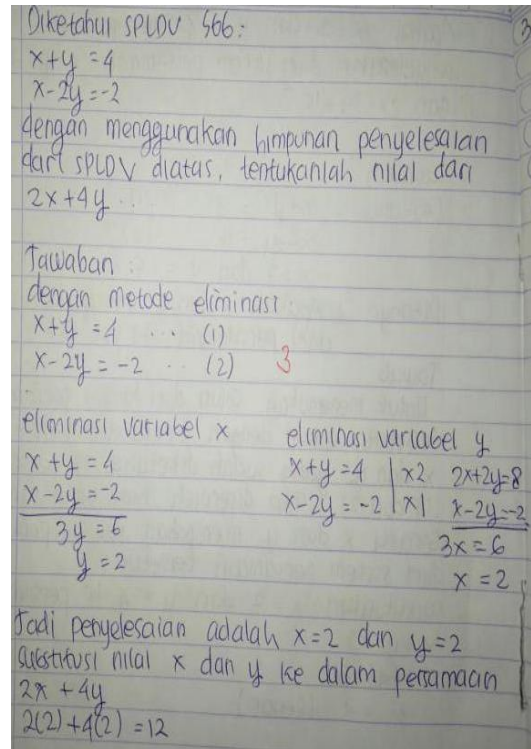 Diketahui SPLDV sbb:
x+y = 4
x-2y = -2
dengan menggunakan himpunan penyelesaian
dari SPLDV diatas, tentukanlah nilai dari
2x+4y ..
Jawaban :
dengan metode eliminasi
x+y = 4 .. (1)
x-2y = -2 .. (2) 3
eliminasi variabel x
x+y = 4
x-2y = -2
3y = 6
y = 2
eliminasi variabel y
x+y = 4 | x2 2x+2y=8
x-2y = -2 | x1 x-2y=-2
3x = 6
x = 2
Jadi penyelesaian adalah x=2 dan y=2
substitusi nilai x dan y ke dalam persamaan
2x + 4y
2(2)+4(2) = 12